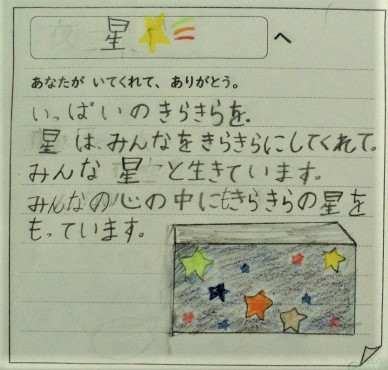 星 へ
あなたが いてくれて、ありがとう。
いっぱいのきらきらを.
星は、みんなをきらきらにしてくれて.
みんな星と生きています。
みんなの心の中にもきらきらの星を
もっています。